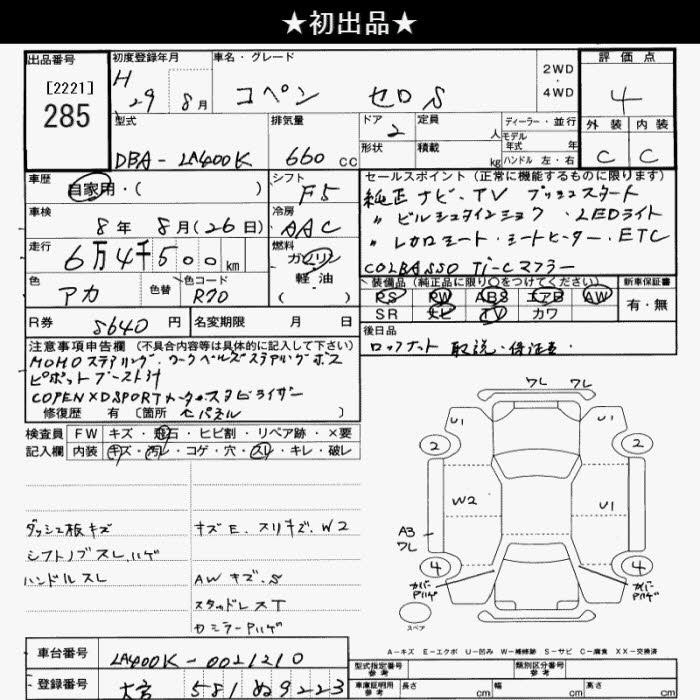 ★初出品★
出品番号
[2221]
285
初度登録年月
H 29 8月
車名・グレード
コペン セロS
2WD
・
4WD
評価点
4
外装 内装
C C
型式
DBA-LA400K
排気量
660 CC
ドア
2
定員
人
形状
積載
kg
ディーラー・並行
モデル年式 年式
ハンドル 左・右
車歴
自家用・( )
シフト
F5
セールスポイント(正常に機能するものに限ります)
純正ナビ・TV プッシュスタート
〃 ビルシュタインショック ・LEDライト
〃 レカロシート・シートヒーター・ETC
COLBASSO Ti-Cマフラー
車検
8年 8月(26日)
冷房
AAC
走行
6万4千500km
燃料
ガソリン
軽・油
( )
色
アカ
色替
色コード
R70
装備品(純正品に限り○をつけてください)
PS PW ABS エアB AW
SR ナビ TV カワ
新車保証書
有・無
R券
5640円
名変期限 月 日
後日品
ロックナット 取説・保証書
注意事項申告欄(不具合内容等は具体的に記入して下さい)
MOMOステアリング、ワークベルズステアリングボス
ピボットブースト計
COPEN×DSPORTメーター、スタビライザー
修復歴 有(箇所 )
検査員
記入欄
FW キズ・飛石・ヒビ割・リペア跡・×要
内装 キズ・汚レ・コゲ・穴・スレ・キレ・破レ
ダッシュ板キズ
シフトノブスレ、ハゲ
ハンドルスレ
キズE、スリキズ、W2
AWキズ、S
スタッドレスT
ドミラーPハゲ
ワレ ワレ
U1 U1
2 2
W2 U1
A3
ワレ
4 4
カバー
Pハゲ
カバー
Pハゲ
スペア
A-キズ E-エクボ U-凹み W-補修跡 S-サビ C-腐食 XX-交換済
車台番号
LA400K-0021210
登録番号
581 ぬ 9223
型式指定番号
参考
類別区分番号
参考
車庫証明用
参考
長さ cm 幅 cm 高さ cm